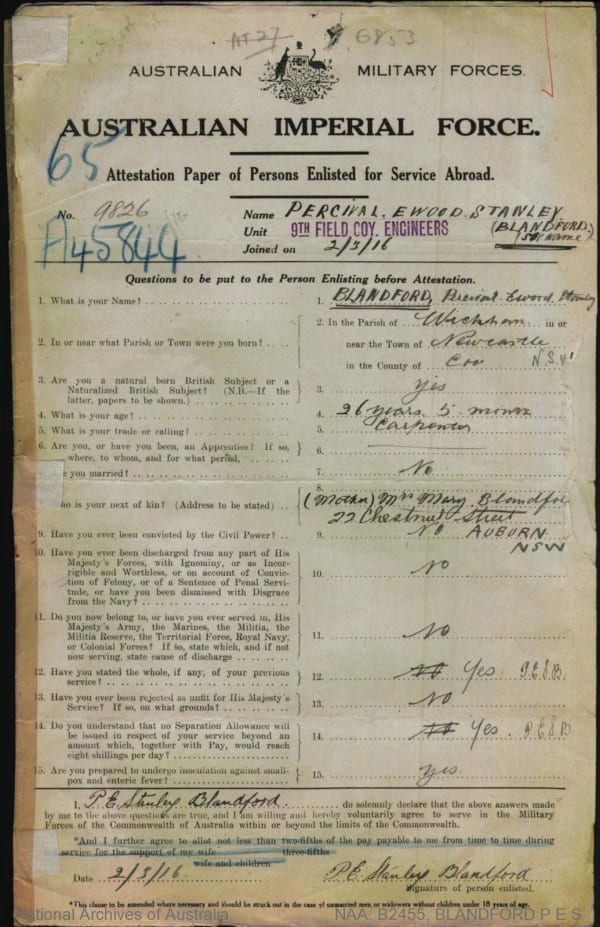 AT 27 6853
AUSTRALIAN MILITARY FORCES.
AUSTRALIAN IMPERIAL FORCE.
65
Attestation Paper of Persons Enlisted for Service Abroad.
No. 9826
A45844
Name PERCIVAL. EWOOD. STANLEY
(BLANDFORD.)
Unit 9TH FIELD COY. ENGINEERS (SURNAME)
Joined on 2/3/16
Questions to be put to the Person Enlisting before Attestation.
1. What is your Name? 1. BLANDFORD, Percival. Ewood. Stanley
2. In or near what Parish or Town were you born? 2. In the Parish of Wickham in or
near the Town of Newcastle
in the County of N.S.W
3. Are you a natural born British Subject or a
Naturalized British Subject? (N.B.—If the
latter, papers to be shown.) 3. Yes
4. What is your age? 4. 26 years 5 months
5. What is your trade or calling? 5. Carpenter
6. Are you, or have you been, an Apprentice? If so,
where, to whom, and for what period, 6.
you married? 7. No
8. (Mother) Mrs Mary Blandfo
ho is your next of kin? (Address to be stated) 22 Chestnut Street
9. Have you ever been convicted by the Civil Power? 9. No AUBURN
NSW
10. Have you ever been discharged from any part of His
Majesty's Forces, with Ignominy, or as Incor-
rigible and Worthless, or on account of Convic-
tion of Felony, or of a Sentence of Penal Servi-
tude, or have you been dismissed with Disgrace
from the Navy? 10. No
11. Do you now belong to, or have you ever served in, His
Majesty's Army, the Marines, the Militia, the
Militia Reserve, the Territorial Force, Royal Navy,
or Colonial Forces? If so, state which, and if not
now serving, state cause of discharge 11. No
12. Have you stated the whole, if any, of your previous
service? 12. No Yes P.E.S.B.
13. Have you ever been rejected as unfit for His Majesty's
Service? If so, on what grounds? 13. No
14. Do you understand that no Separation Allowance will
be issued in respect of your service beyond an
amount which, together with Pay, would reach
eight shillings per day? 14. No Yes. P.E.S.B
15. Are you prepared to undergo inoculation against small-
pox and enteric fever? 15. Yes.
I, P.E. Stanley Blandford do solemnly declare that the above answers made
by me to the above questions are true, and I am willing and hereby voluntarily agree to serve in the Military
Forces of the Commonwealth of Australia within or beyond the limits of the Commonwealth.
*And I further agree to allot not less than two-fifths of the pay payable to me from time to time during
service for the support of my wife three-fifths
wife and children
Date 2/3/16 P.E. Stanley Blandford
Signature of person enlisted.
*This clause to be amended where necessary and should be struck out in the case of unmarried men or widowers without children under 18 years of age.
National Archives of Australia NAA: B2455, BLANDFORD P E S